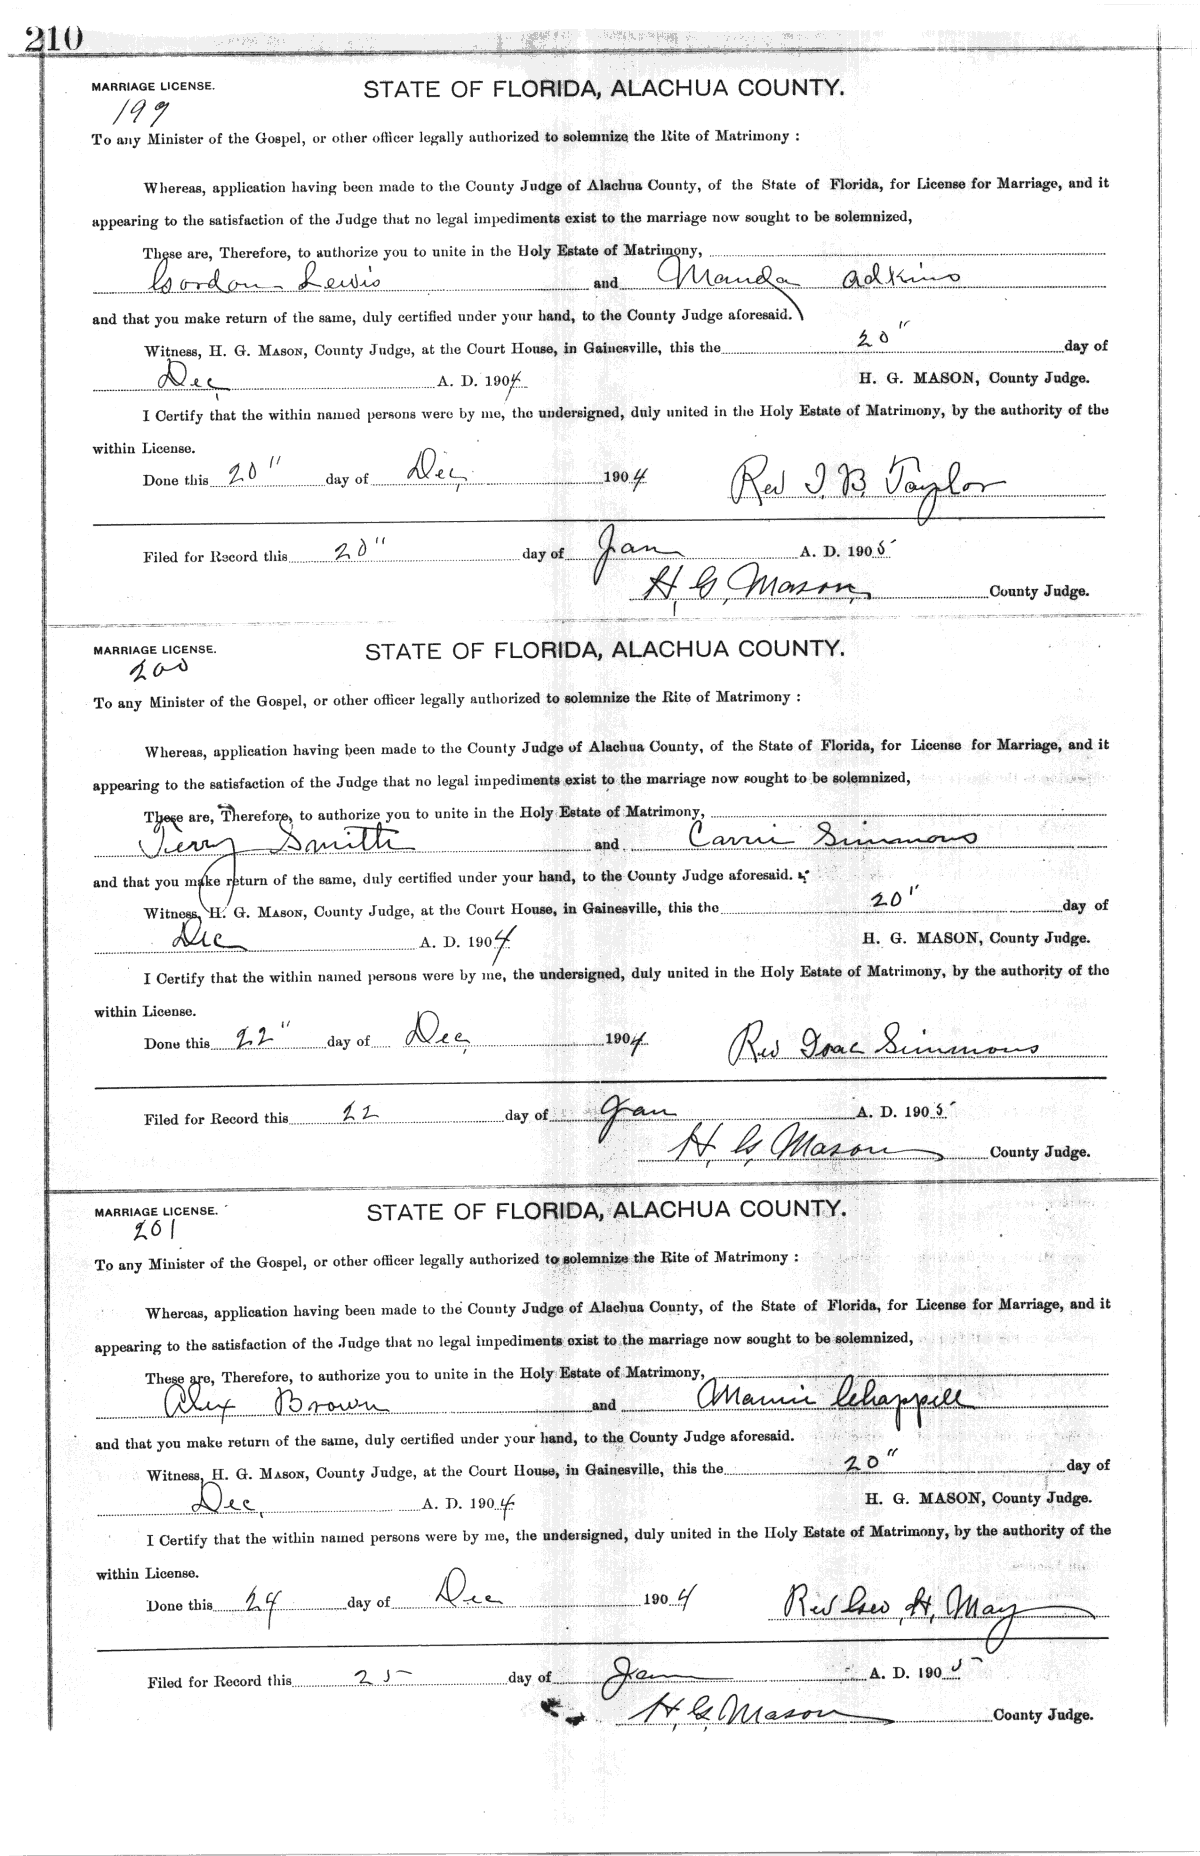 210
MARRIAGE LICENSE. STATE OF FLORIDA, ALACHUA COUNTY.
199
To any Minister of the Gospel, or other officer legally authorized to solemnize the Rite of Matrimony :
Whereas, application having been made to the County Judge of Alachua County, of the State of Florida, for License for Marriage, and it
appearing to the satisfaction of the Judge that no legal impediments exist to the marriage now sought to be solemnized,
These are, Therefore, to authorize you to unite in the Holy Estate of Matrimony,
Gordon Lewis and Manda Adkins
and that you make return of the same, duly certified under your hand, to the County Judge aforesaid.
Witness, H. G. MASON, County Judge, at the Court House, in Gainesville, this the 20" day of
Dec, A. D. 1904 H. G. MASON, County Judge.
I Certify that the within named persons were by me, the undersigned, duly united in the Holy Estate of Matrimony, by the authority of the
within License.
Done this 20" day of Dec, 1904 Rev I. B. Taylor
Filed for Record this 20" day of Jan A. D. 1905
H. G. Mason, County Judge.
MARRIAGE LICENSE. STATE OF FLORIDA, ALACHUA COUNTY.
200
To any Minister of the Gospel, or other officer legally authorized to solemnize the Rite of Matrimony :
Whereas, application having been made to the County Judge of Alachua County, of the State of Florida, for License for Marriage, and it
appearing to the satisfaction of the Judge that no legal impediments exist to the marriage now sought to be solemnized,
These are, Therefore, to authorize you to unite in the Holy Estate of Matrimony,
Jerry Smith and Carrie Simmons
and that you make return of the same, duly certified under your hand, to the County Judge aforesaid.
Witness, H. G. MASON, County Judge, at the Court House, in Gainesville, this the 20" day of
Dec A. D. 1904 H. G. MASON, County Judge.
I Certify that the within named persons were by me, the undersigned, duly united in the Holy Estate of Matrimony, by the authority of the
within License.
Done this 22" day of Dec, 1904 Rev Isac Simmons
Filed for Record this 22 day of Jan A. D. 1905
H. G. Mason County Judge.
MARRIAGE LICENSE. STATE OF FLORIDA, ALACHUA COUNTY.
201
To any Minister of the Gospel, or other officer legally authorized to solemnize the Rite of Matrimony :
Whereas, application having been made to the County Judge of Alachua County, of the State of Florida, for License for Marriage, and it
appearing to the satisfaction of the Judge that no legal impediments exist to the marriage now sought to be solemnized,
These are, Therefore, to authorize you to unite in the Holy Estate of Matrimony,
Alex Brown and Mamie Chappell
and that you make return of the same, duly certified under your hand, to the County Judge aforesaid.
Witness, H. G. MASON, County Judge, at the Court House, in Gainesville, this the 20" day of
Dec, A. D. 1904 H. G. MASON, County Judge.
I Certify that the within named persons were by me, the undersigned, duly united in the Holy Estate of Matrimony, by the authority of the
within License.
Done this 24 day of Dec 1904 Rev Geo. H. May
Filed for Record this 25 day of Jan A. D. 1905
H. G. Mason County Judge.